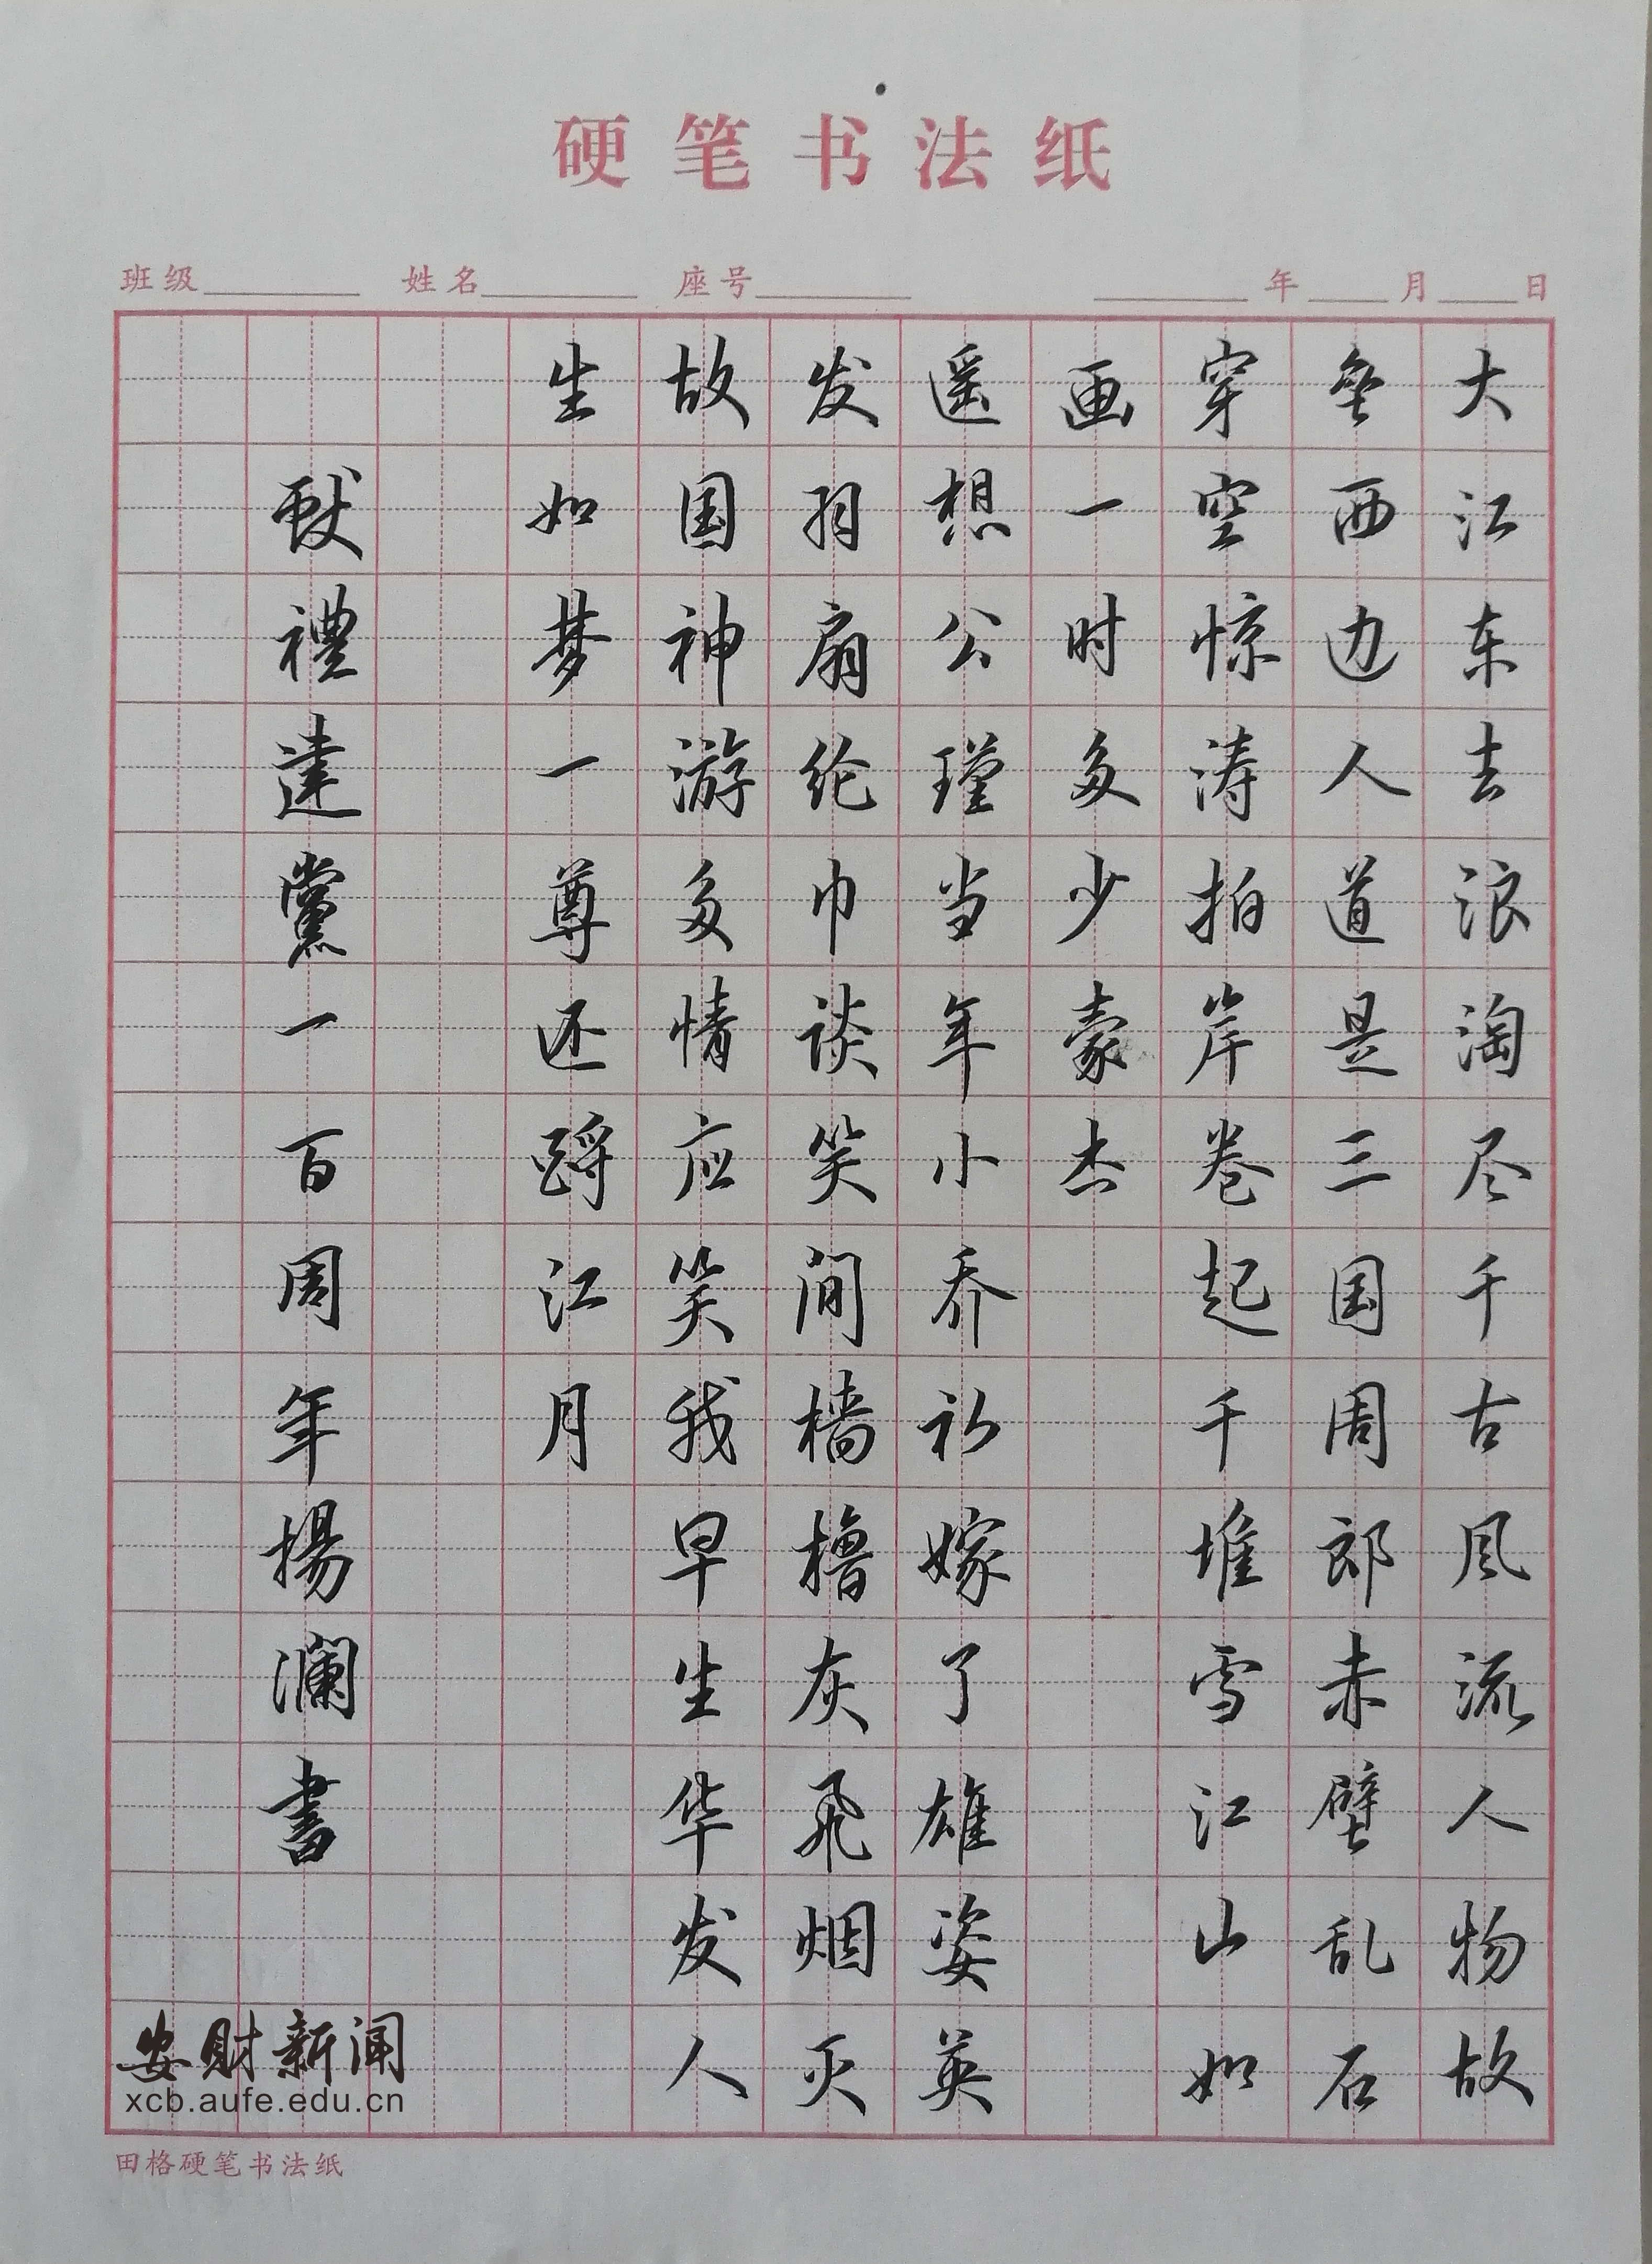 硬笔书法纸
班级 姓名 座号 年 月 日
大江东去浪淘尽千古风流人物故
垒西边人道是三国周郎赤壁乱石
穿空惊涛拍岸卷起千堆雪江山如
画一时多少豪杰
遥想公瑾当年小乔初嫁了雄姿英
发羽扇纶巾谈笑间樯橹灰飞烟灭
故国神游多情应笑我早生华发人
生如梦一尊还酹江月
献禮建黨一百周年揚瀾書
安财新闻
xcb.aufe.edu.cn
田格硬笔书法纸